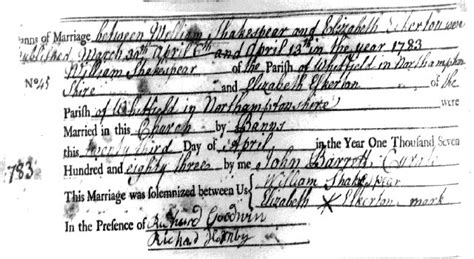 Banns of Marriage between William Shakespear and Elizabeth Elkerton were
Published March 30th April 6th and April 13th in the year 1783
William Shakespear of the Parish of Whitfield in Northampton
No 45 Shire and Elizabeth Elkerton of the
Parish of Whitfield in Northamptonshire were
Married in this Church by Banns
this twenty third Day of April in the Year One Thousand Seven
783 Hundred and eighty three by me John Barrott, Curate
This Marriage was solemnized between Us William Shakespear
Elizabeth X Elkerton mark
In the Presence of Richard Goodwin
Richard Hornby